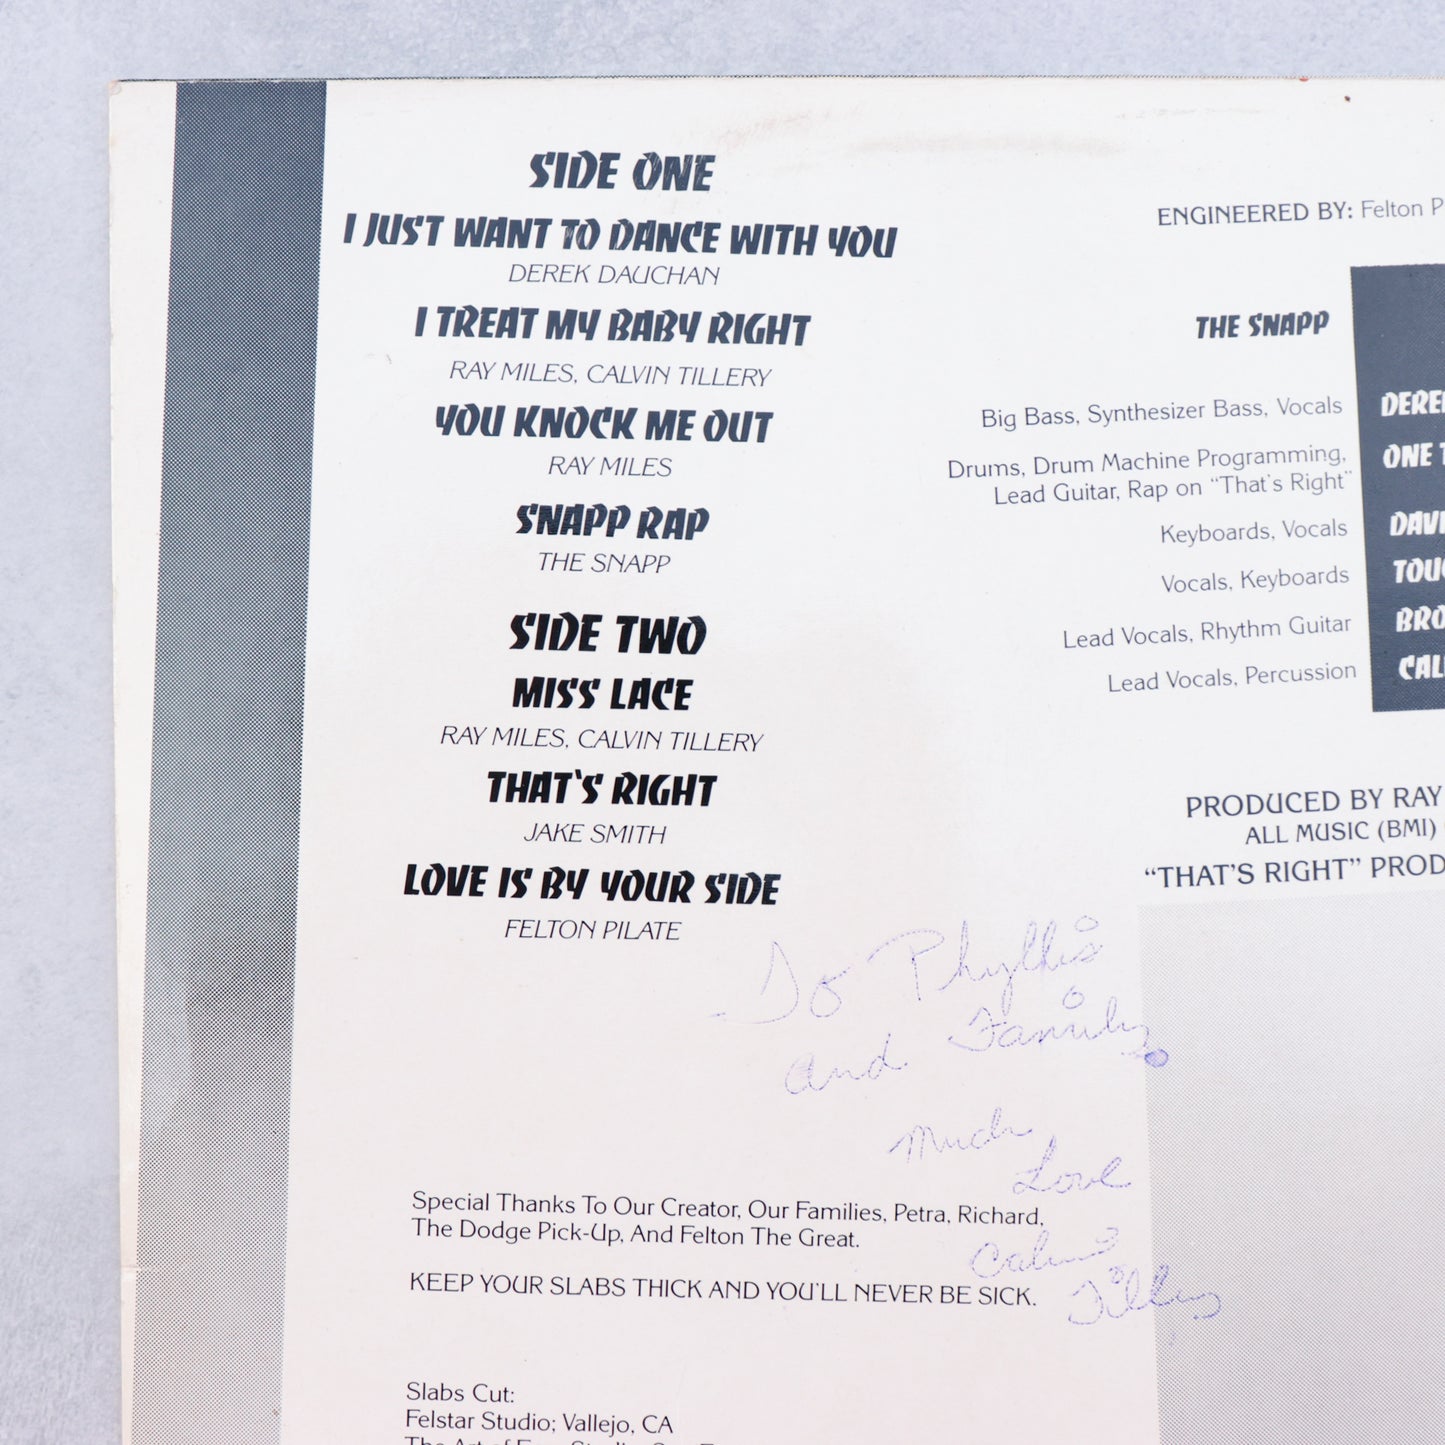 SIDE ONE
I JUST WANT TO DANCE WITH YOU
DEREK DAUCHAN
I TREAT MY BABY RIGHT
RAY MILES, CALVIN TILLERY
YOU KNOCK ME OUT
RAY MILES
SNAPP RAP
THE SNAPP
SIDE TWO
MISS LACE
RAY MILES, CALVIN TILLERY
THAT'S RIGHT
JAKE SMITH
LOVE IS BY YOUR SIDE
FELTON PILATE
ENGINEERED BY: Felton P
THE SNAPP
Big Bass, Synthesizer Bass, Vocals
Drums, Drum Machine Programming,
Lead Guitar, Rap on "That's Right"
Keyboards, Vocals
Vocals, Keyboards
Lead Vocals, Rhythm Guitar
Lead Vocals, Percussion
DEREK
ONE T
DAVI
TOUC
BRO
CAL
PRODUCED BY RAY
ALL MUSIC (BMI)
"THAT'S RIGHT" PROD
To Phyllis
and Family
Much
Love
Calvin
Tillery
Special Thanks To Our Creator, Our Families, Petra, Richard,
The Dodge Pick-Up, And Felton The Great.
KEEP YOUR SLABS THICK AND YOU'LL NEVER BE SICK.
Slabs Cut:
Felstar Studio; Vallejo, CA
The Art of